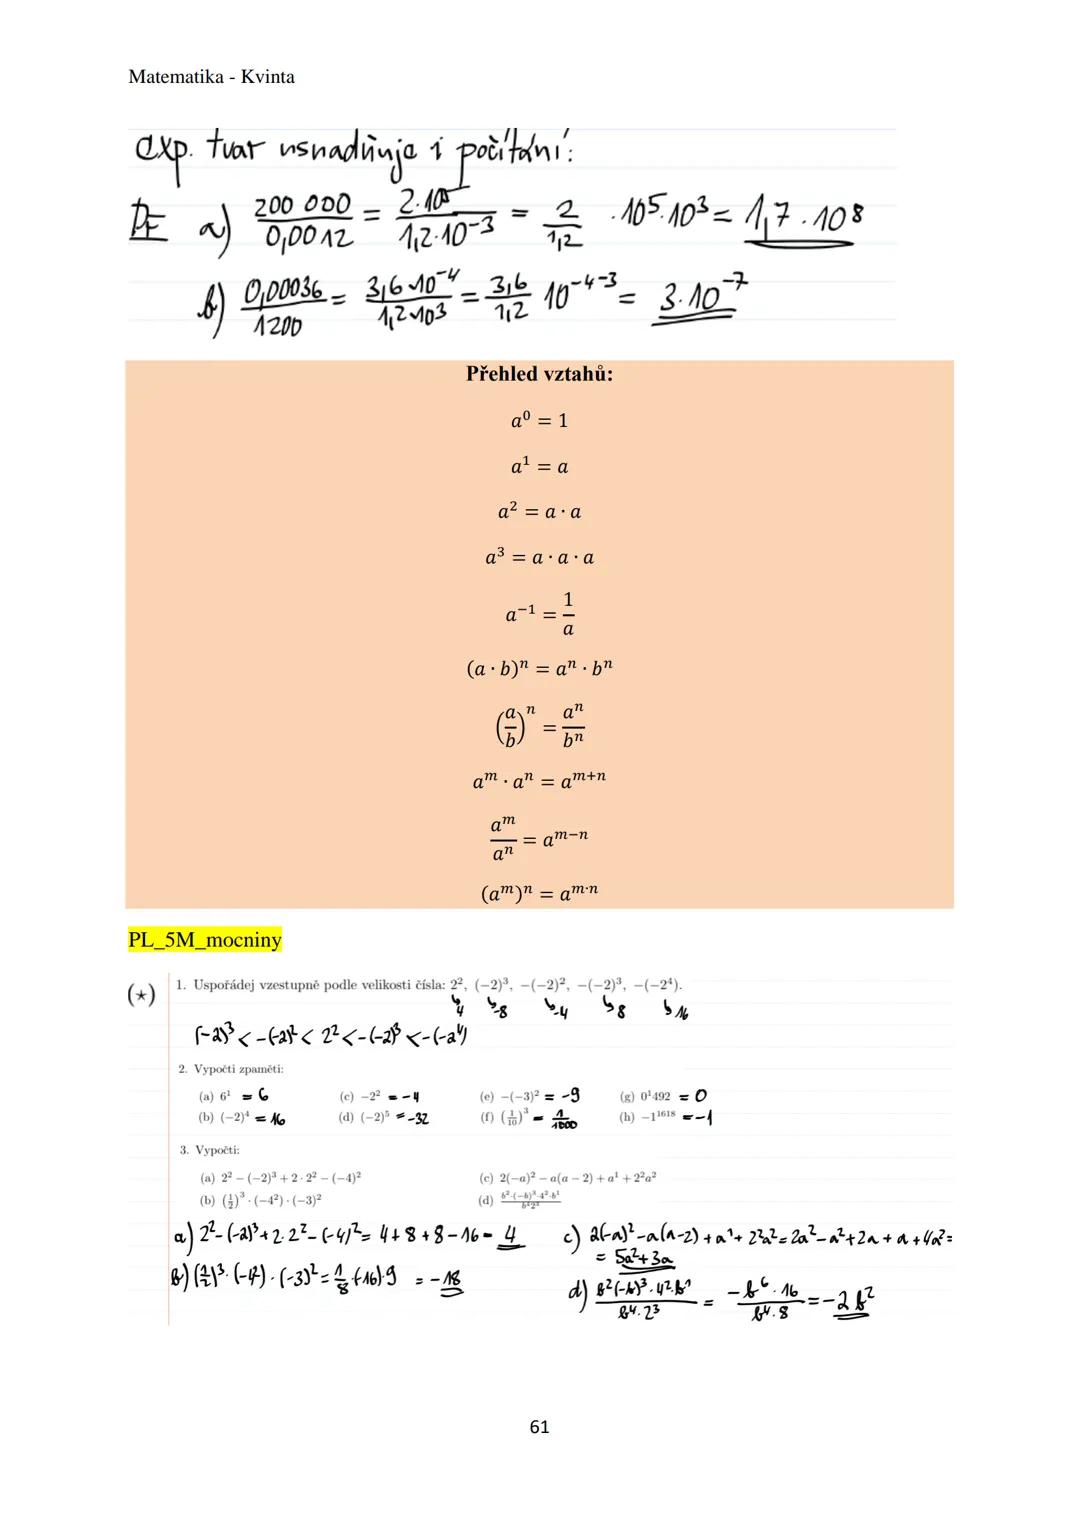 Matematika - Kvinta
exp. tvar usnadňuje i počítání:
PŘ a) 200 000 / 0,0012 = 2·10⁵ / 1,2·10⁻³ = 2 / 1,2 · 10⁵·10³ = 1,7·10⁸
b) 0,00036 / 1200 = 3,6·10⁻⁴ / 1,2·10³ = 3,6 / 1,2 10⁻⁴⁻³ = 3·10⁻⁷
Přehled vztahů:
a⁰ = 1
a¹ = a
a² = a · a
a³ = a · a · a
a⁻¹ = 1/a
(a · b)ⁿ = aⁿ · bⁿ
(a/b)ⁿ = aⁿ/bⁿ
aᵐ · aⁿ = aᵐ⁺ⁿ
aᵐ/aⁿ = aᵐ⁻ⁿ
(aᵐ)ⁿ = aᵐ·ⁿ
PL_5M_mocniny
(⋆) 1. Uspořádej vzestupně podle velikosti čísla: 2², (−2)³, −(−2)², −(−2)³, −(−2⁴).
↳4 ↳-8 ↳-4 ↳8 ↳16
(-2)³ < -(-2)² < 2² < -(-2)³ < -(-2⁴)
2. Vypočti zpaměti:
(a) 6¹ = 6 (c) −2² = -4 (e) −(−3)² = -9 (g) 0¹492 = 0
(b) (−2)⁴ = 16 (d) (−2)⁵ = -32 (f) (1/10)³ = 1/1000 (h) −1¹⁶¹⁸ = -1
3. Vypočti:
(a) 2² − (−2)³ + 2 · 2² − (−4)² (c) 2(−a)² − a(a − 2) + a¹ + 2²a²
(b) (1/2)³ · (−4²) · (−3)² (d) b²·(−b)³·4²·b¹ / b⁴2³
a) 2²-(-2)³+2·2²-(-4)² = 4+8+8-16 = 4 c) 2(-a)²-a(a-2)+a¹+2²a² = 2a²-a²+2a+a+4a² =
= 5a²+3a
b) (1/2)³·(-4²)·(-3)² = 1/8·(-16)·9 = -18
d) b²(-b)³·4²·b¹ / b⁴·2³ = -b⁶·16 / b⁴·8 = -2b²
61